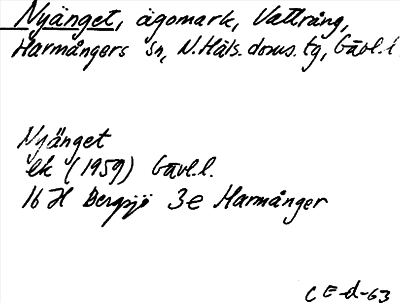 Nyänget, ägomark, Vattrång,
Harmångers sn, N. Häls. doms. tg, Gävl. l.
Nyänget
ek (1959) Gävl. l.
16 H Bergsjö 3e Harmånger
CE-d-63